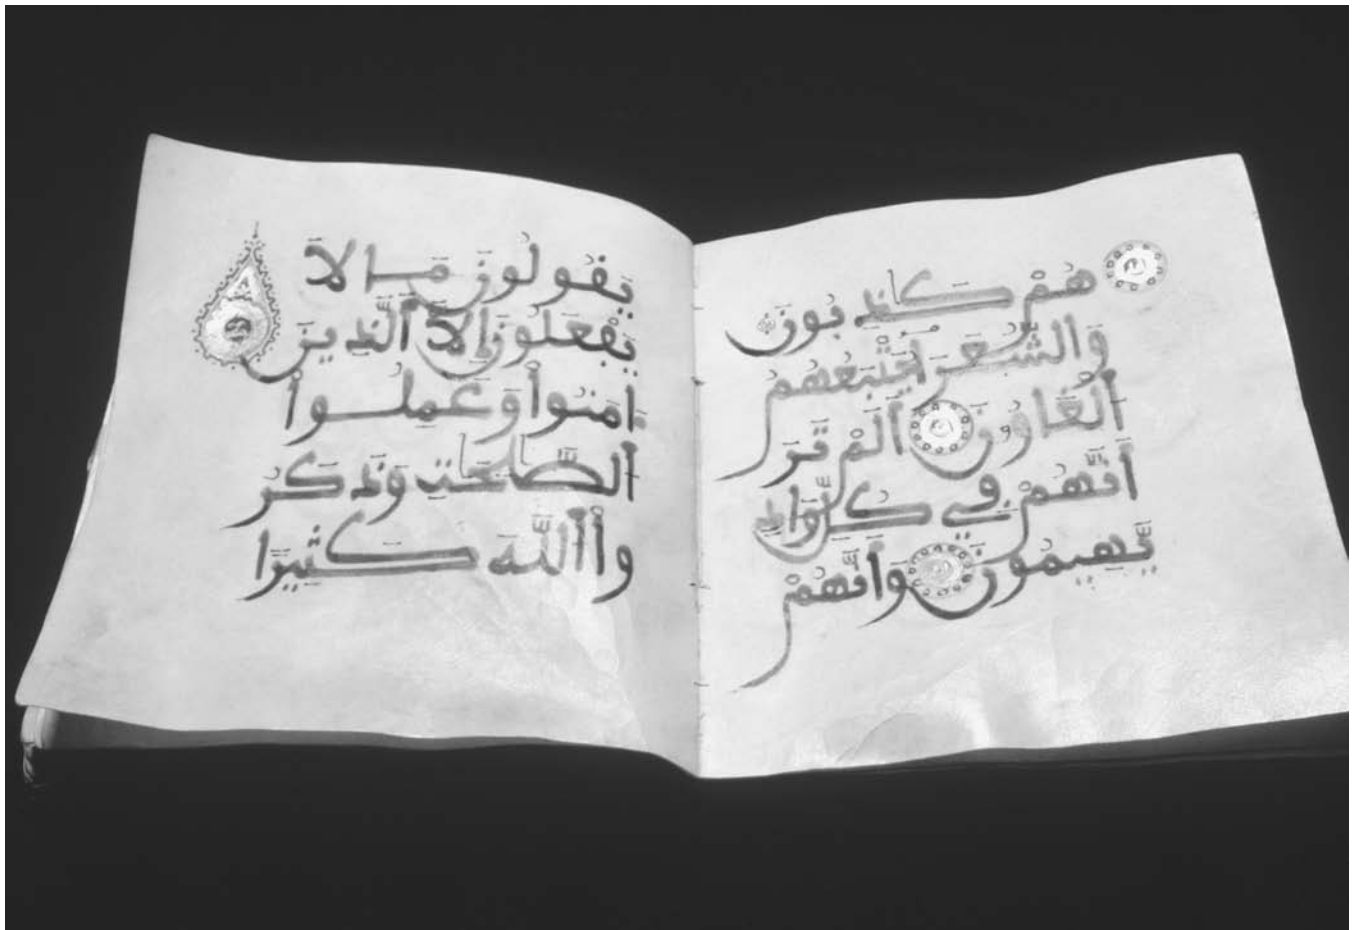 هُمْ كَٰذِبُونَ
وَالشُّعَرَآءُ يَتْبَعُهُمُ
ٱلْغَاوُۥنَ أَلَمْ تَرَ
أَنَّهُمْ فِي كُلِّ وَادٍ
يَّهِيمُونَ وَأَنَّهُمْ
يَقُولُونَ مَا لَا
يَفْعَلُونَ إِلَّا ٱلَّذِينَ
ءَامَنُوا وَعَمِلُوا
ٱلصَّٰلِحَٰتِ وَذَكَرُ
وا ٱللَّهَ كَثِيرًا